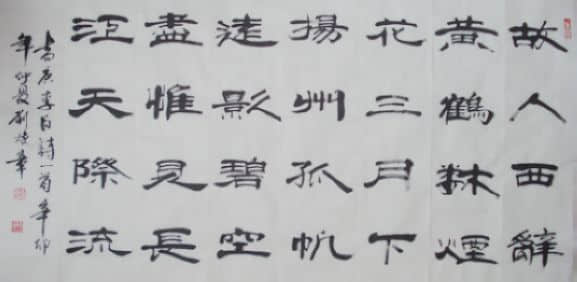 故人西辭
黃鶴楼煙
花三月下
揚州孤帆
遠影碧空
盡惟見長
江天際流
書唐李白詩一首辛卯
年仲夏劉